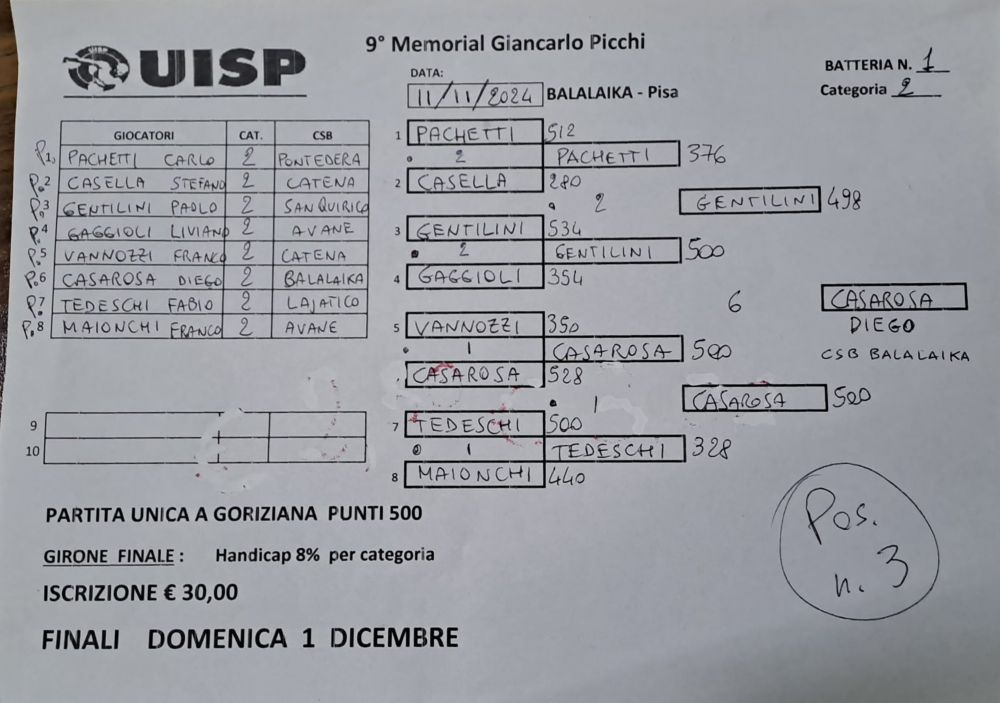 UISP
9° Memorial Giancarlo Picchi
DATA:
11/11/2024 BALALAIKA - Pisa
BATTERIA N. 1
Categoria 2
GIOCATORI CAT. CSB
P.1 PACHETTI CARLO 2 PONTEDERA
P.2 CASELLA STEFANO 2 CATENA
P.3 GENTILINI PAOLO 2 SAN QUIRICO
P.4 GAGGIOLI LIVIANO 2 AVANE
P.5 VANNOZZI FRANCO 2 CATENA
P.6 CASAROSA DIEGO 2 BALALAIKA
P.7 TEDESCHI FABIO 2 LAJATICO
P.8 MAIONCHI FRANCO 2 AVANE
9
10
1 PACHETTI 512
2 PACHETTI 376
2 CASELLA 280
2 GENTILINI 498
3 GENTILINI 534
2 GENTILINI 500
4 GAGGIOLI 354
6 CASAROSA
DIEGO
CSB BALALAIKA
5 VANNOZZI 350
1 CASAROSA 500
CASAROSA 528
1 CASAROSA 500
7 TEDESCHI 500
1 TEDESCHI 328
8 MAIONCHI 440
PARTITA UNICA A GORIZIANA PUNTI 500
GIRONE FINALE : Handicap 8% per categoria
ISCRIZIONE € 30,00
FINALI DOMENICA 1 DICEMBRE
Pos.
n. 3